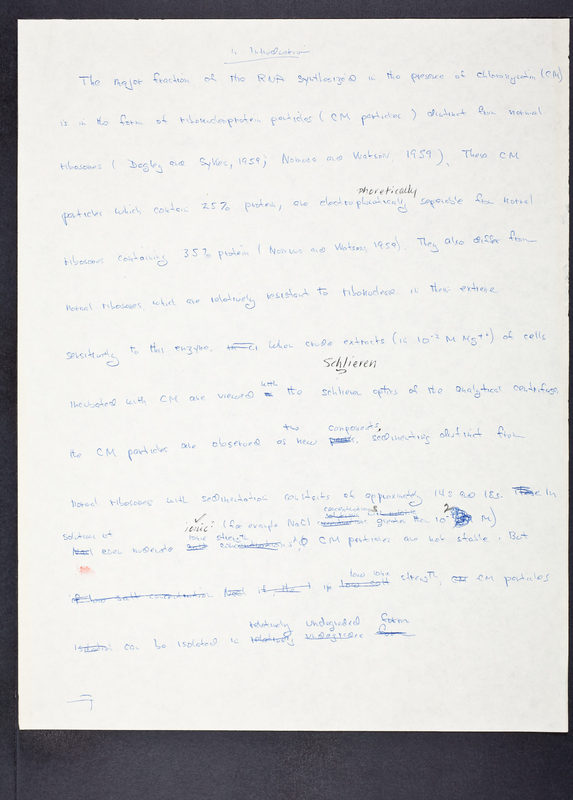 1. Introduction
The major fraction of the RNA synthesized in the presence of chloromycetin (CM)
is in the form of ribonucleoprotein particles ( CM particles ) distinct from normal
ribosomes ( Dagley and Sykes, 1959; Nomura and Watson, 1959 ). These CM
phoretically
particles which contain 25% protein, are electrophoretically separable from normal
ribosomes containing 35% protein ( Nomura and Watson, 1959). They also differ from
normal ribosomes which are relatively resistant to ribonuclease in their extreme
sensitivity to this enzyme. When crude extracts (in 10⁻² M Mg⁺⁺) of cells
Schlieren
with
incubated with CM are viewed the schlieren optics of the analytical centrifuge
two components,
the CM particles are observed as new sedimenting distinct from
normal ribosomes with sedimentation constants of approximately 14s and 18s. In
concentrations
solution of ionic: (for example NaCl greater than 10⁻² M)
ionic strength
even moderate CM particles are not stable. But
low ionic
in low salt strength, CM particles
relatively undegraded form
can be isolated in relatively undegraded form